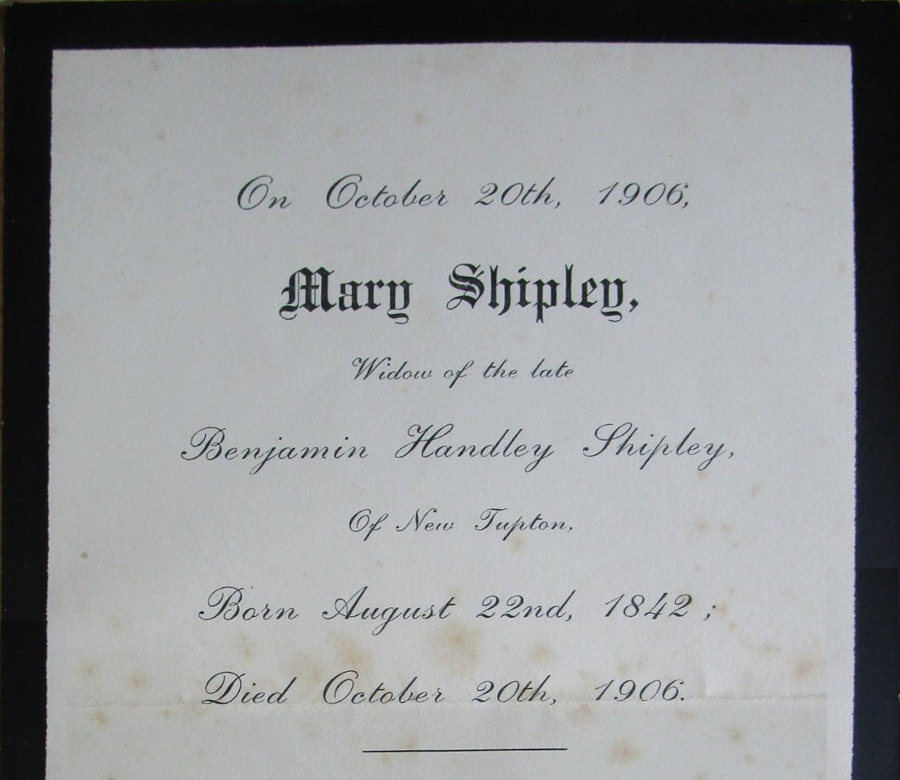 On October 20th, 1906,
Mary Shipley,
Widow of the late
Benjamin Handley Shipley,
Of New Tupton,
Born August 22nd, 1842 ;
Died October 20th, 1906.